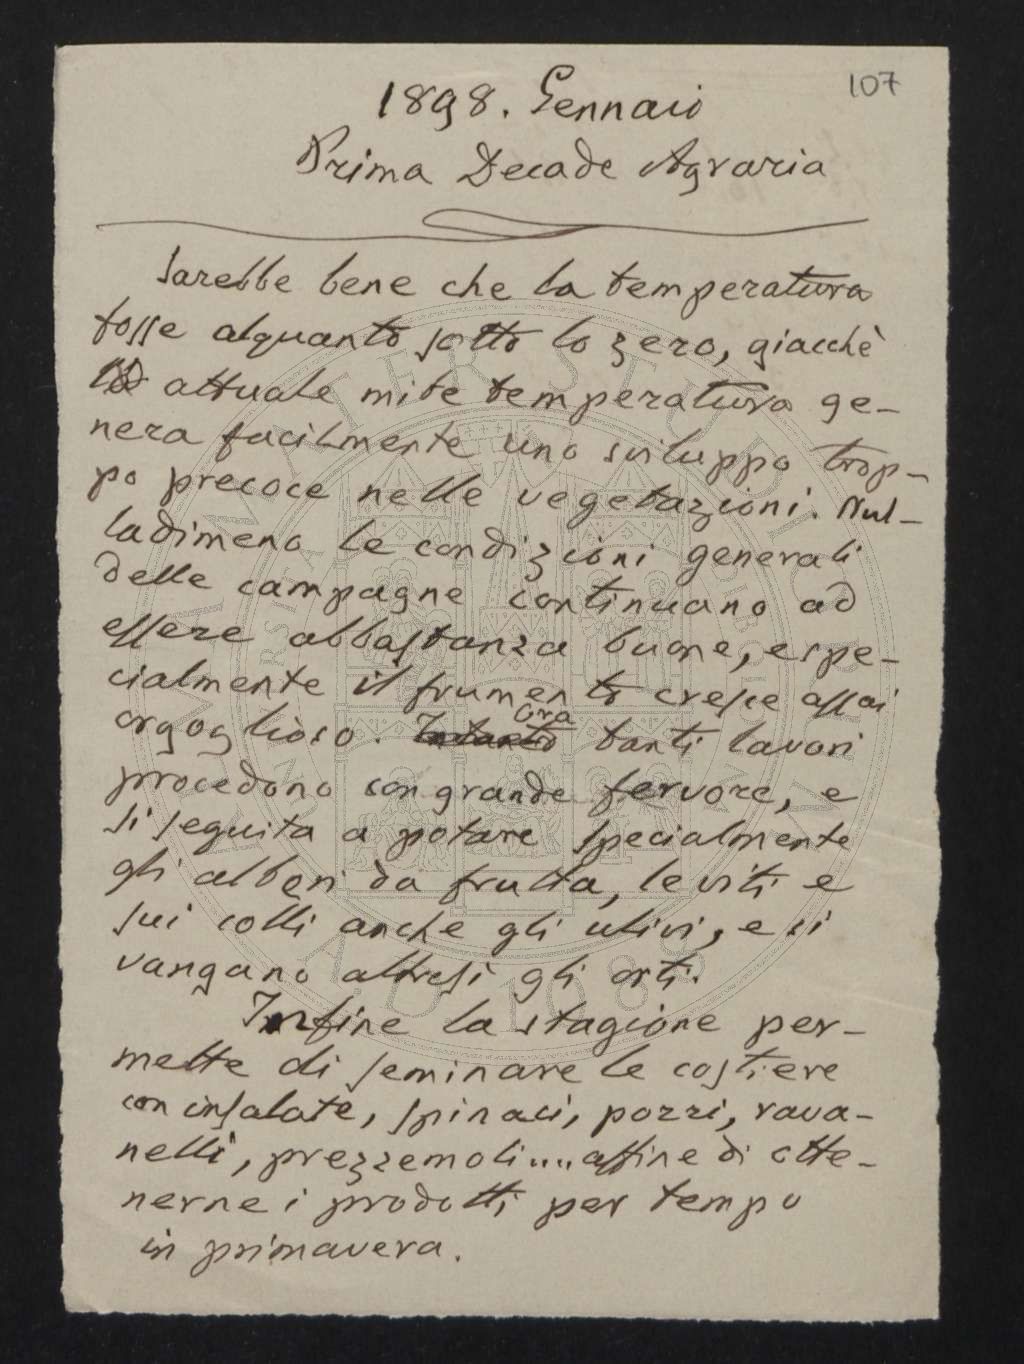 107
1898. Gennaio
Prima Decade Agraria
Sarebbe bene che la temperatura
fosse alquanto sotto lo zero, giacchè
attuale mite temperatura ge-
nera facilmente uno sviluppo trop-
po precoce nelle vegetazioni. Nul-
ladimeno le condizioni generali
delle campagne continuano ad
essere abbastanza buone, e spe-
cialmente il frumento cresce assai
orgoglioso. Intanto Ora tanti lavori
procedono con grande fervore, e
si seguita a potare specialmente
gli alberi da frutta, le viti e
sui colli anche gli ulivi, e si
vangano altresì gli orti.
Infine la stagione per-
mette di seminare le costiere
con insalate, spinaci, porri, rava-
nelli, prezzemoli.... affine di otte-
nerne i prodotti per tempo
in primavera.